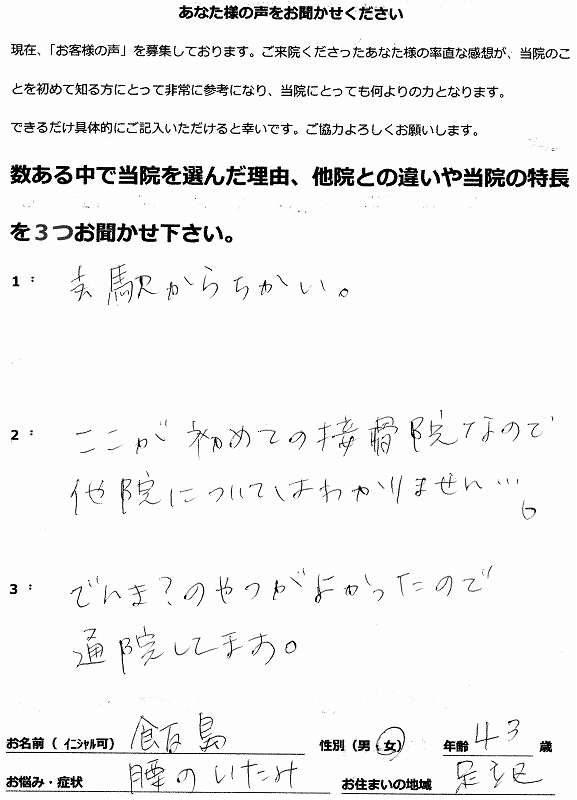 あなた様の声をお聞かせください
現在、「お客様の声」を募集しております。ご来院くださったあなた様の率直な感想が、当院のこ
とを初めて知る方にとって非常に参考になり、当院にとっても何よりの力となります。
できるだけ具体的にご記入いただけると幸いです。ご協力よろしくお願いします。
数ある中で当院を選んだ理由、他院との違いや当院の特長
を3つお聞かせ下さい。
1： 駅からちかい。
2： ここが初めての接骨院なので
他院についてはわかりません…。
3： でんま？のやつがよかったので
通院してます。
お名前（ｲﾆｼｬﾙ可） 飯島 性別（男・女） 年齢 43 歳
お悩み・症状 腰のいたみ お住まいの地域 足立区